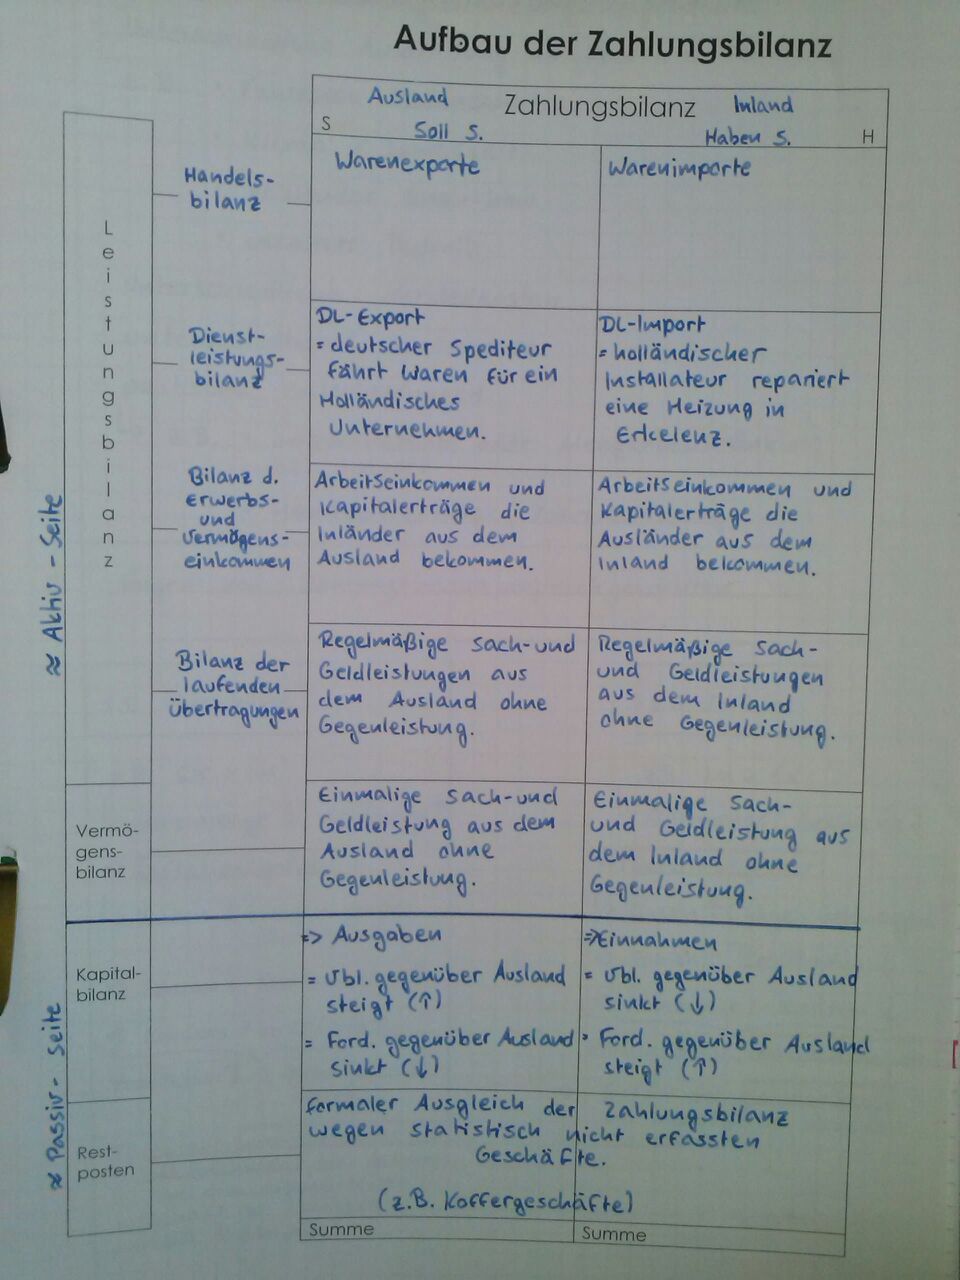 Aufbau der Zahlungsbilanz
Ausland Zahlungsbilanz Inland
S Soll S. Haben S. H
Leistungsbilanz
Handels-
bilanz
Warenexporte
Warenimporte
Dienst-
leistungs-
bilanz
DL-Export
= deutscher Spediteur
fährt Waren für ein
Holländisches
Unternehmen.
DL-Import
= holländischer
Installateur repariert
eine Heizung in
Erkelenz.
Bilanz d.
Erwerbs-
und
Vermögens-
einkommen
Arbeitseinkommen und
Kapitalerträge die
Inländer aus dem
Ausland bekommen.
Arbeitseinkommen und
Kapitalerträge die
Ausländer aus dem
Inland bekommen.
Bilanz der
laufenden
Übertragungen
Regelmäßige Sach-und
Geldleistungen aus
dem Ausland ohne
Gegenleistung.
Regelmäßige Sach-
und Geldleistungen
aus dem Inland
ohne Gegenleistung.
≈ Aktiv - Seite
Vermö-
gens-
bilanz
Einmalige Sach-und
Geldleistung aus dem
Ausland ohne
Gegenleistung.
Einmalige Sach-
und Geldleistung aus
dem Inland ohne
Gegenleistung.
Kapital-
bilanz
=> Ausgaben
= Vbl. gegenüber Ausland
steigt (↑)
= Ford. gegenüber Ausland
sinkt (↓)
=> Einnahmen
= Vbl. gegenüber Ausland
sinkt (↓)
= Ford. gegenüber Ausland
steigt (↑)
≈ Passiv- Seite
Rest-
posten
formaler Ausgleich der Zahlungsbilanz
wegen statistisch nicht erfassten
Geschäfte.
(z.B. Koffergeschäfte)
Summe
Summe